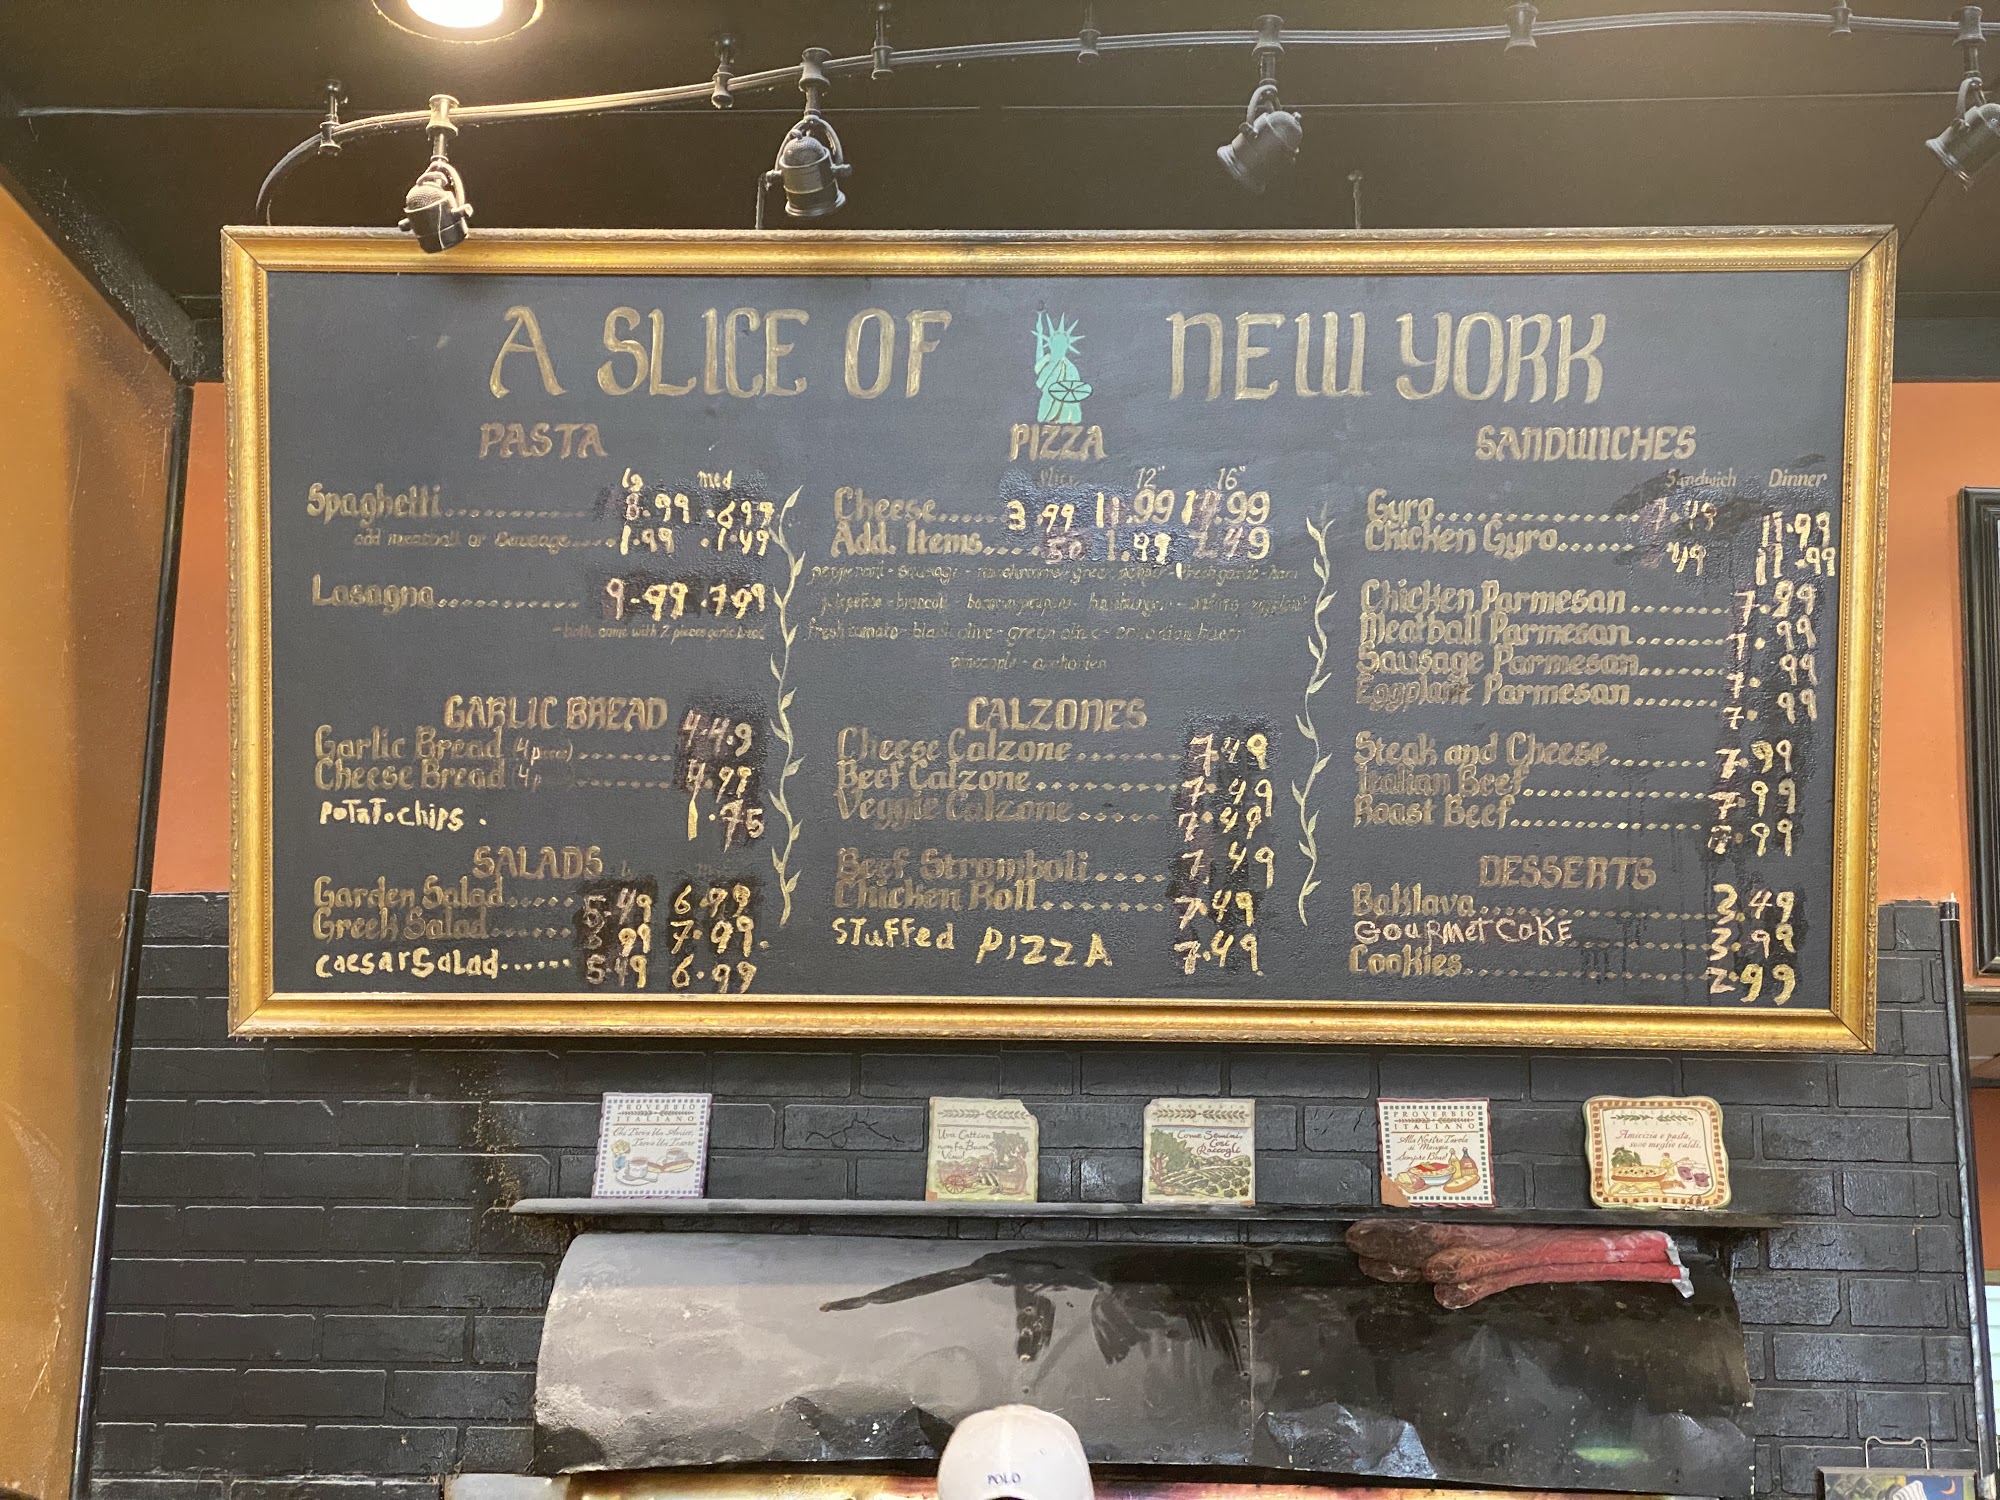 A SLICE OF NEW YORK
PASTA
lg med
Spaghetti 8.99 6.99
add meatball or sausage 1.99 1.49
Lasagna 9.99 7.99
- both come with 2 pieces garlic bread
GARLIC BREAD
Garlic Bread (4 piece) 4.49
Cheese Bread (4 4.99
PoTaTo chips . 1.75
SALADS
Garden Salad 5.49 6.99
Greek Salad .99 7.99.
caesar Salad 5.49 6.99
PIZZA
slice 12" 16"
Cheese 3.99 11.99 14.99
Add. Items .50 1.99 2.49
pepperoni - sausage - mushroom - green pepper - fresh garlic - ham
jalapenos - broccoli - banana peppers - hamburger - - eggplant
fresh tomato - black olive - green olive - canadian bacon
pineapple - anchovies
CALZONES
Cheese Calzone 7.49
Beef Calzone 7.49
Veggie Calzone 7.49
Beef Stromboli 7.49
Chicken Roll 7.49
STuffed PIZZA 7.49
SANDWICHES
Sandwich Dinner
Gyro 7.49 11.99
Chicken Gyro 7.49 11.99
Chicken Parmesan 7.99
Meatball Parmesan 7.99
Sausage Parmesan 7.99
Eggplant Parmesan 7.99
Steak and Cheese 7.99
Italian Beef 7.99
Roast Beef 7.99
DESSERTS
Baklava 3.49
GOURMET CAKE 3.99
Cookies 2.99
PROVERBIO
ITALIANO
Chi Trova Un Amico,
Trova Un Tesoro
Una Cattiva
Vino!
Come Semini,
Cosi
Raccogli
PROVERBIO
ITALIANO
Alla Nostra Tavola
si Mangia
Sempre Bene!
Amicizia e pasta,
sono meglio caldi.
POLO